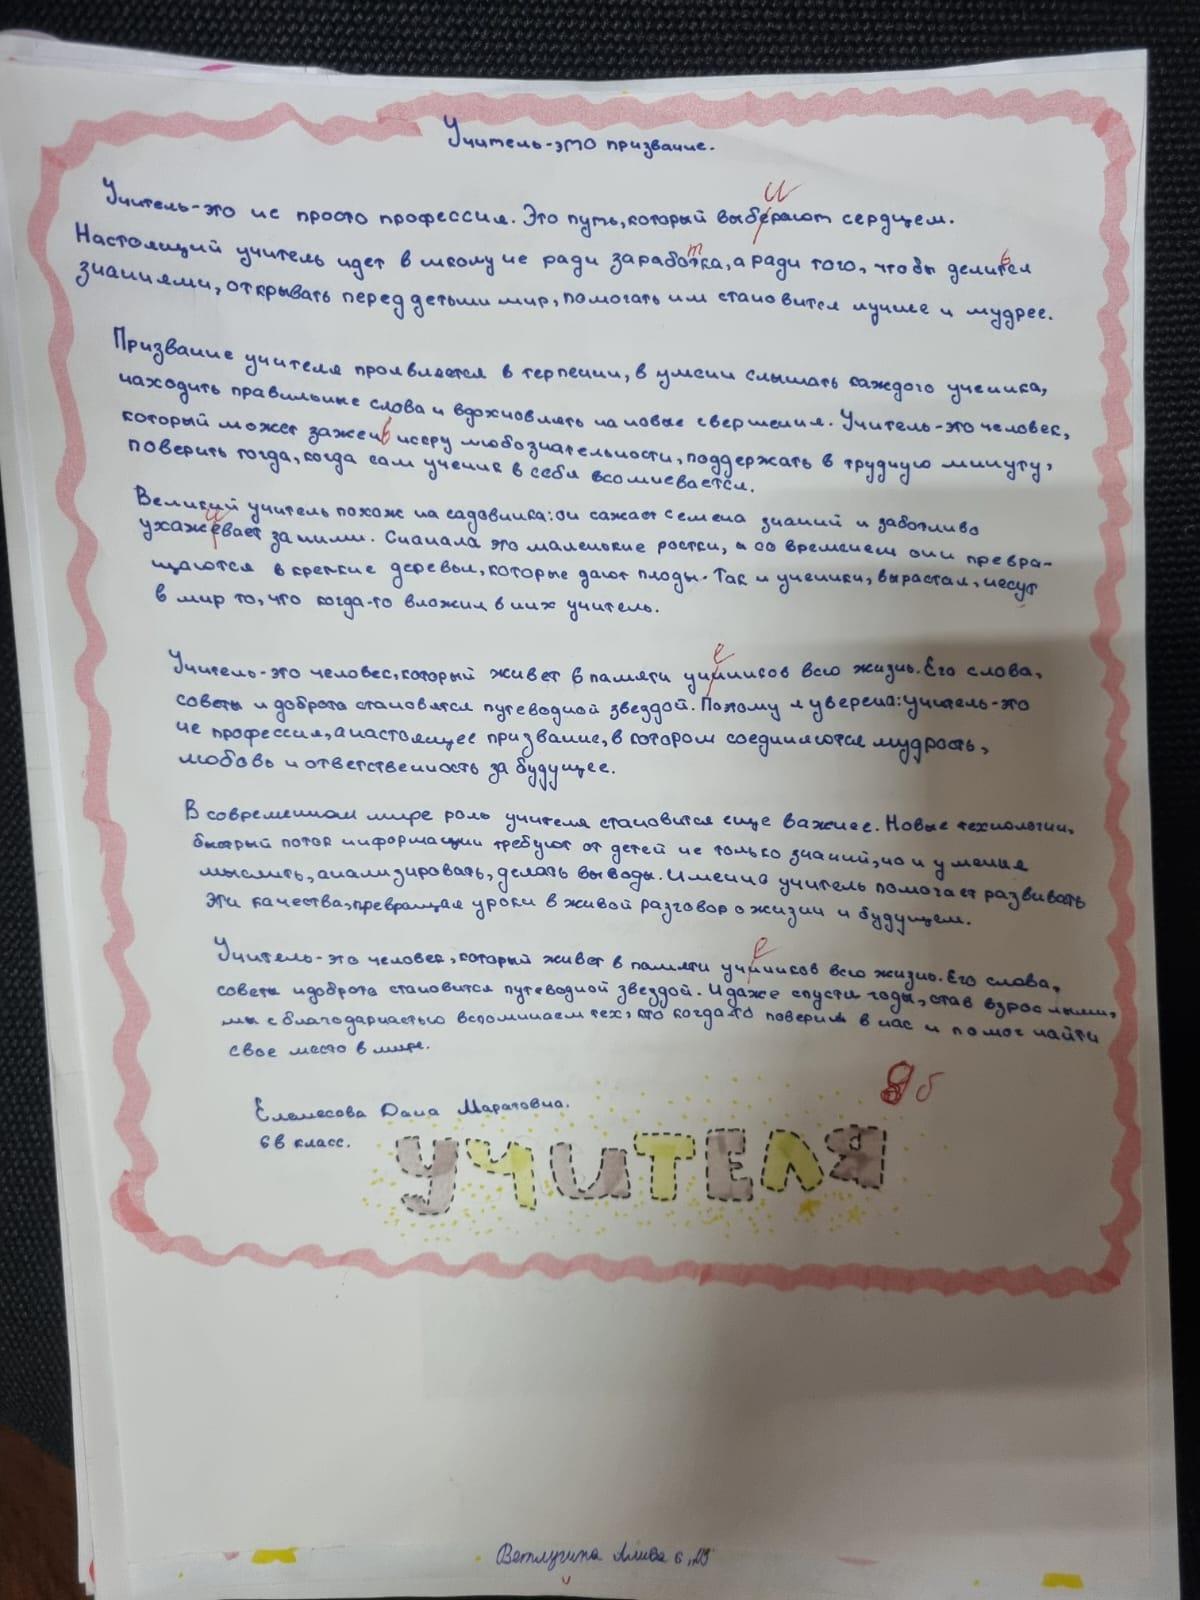 Учитель-это призвание.
Учитель-это не просто профессия. Это путь, который выберают сердцем.
Настоящий учитель идет в школу не ради заработка, а ради того, чтобы делится
знаниями, открывать перед детьми мир, помогать им становится лучше и мудрее.
Призвание учителя проявляется в терпении, в умении слышать каждого ученика,
находить правильные слова и вдохновлять на новые свершения. Учитель-это человек,
который может зажен искру любознательности, поддержать в трудную минуту,
поверить тогда, когда сам ученик в себя всомневается.
Великий учитель похож на садовника: он сажает семена знаний и заботливо
ухажевает за ними. Сначала это маленькие ростки, а со временем они превра-
щаются в крепкие деревья, которые дают плоды. Так и ученики, вырастая, несут
в мир то, что когда-то вложил в них учитель.
Учитель-это человек, который живет в памяти учиников всю жизнь. Его слова,
советы и доброта становятся путеводной звездой. Поэтому я уверена: учитель-это
не профессия, а настоящее призвание, в котором соединяются мудрость,
любовь и ответственность за будущее.
В современном мире роль учителя становится еще важнее. Новые технологии,
быстрый поток информации требуют от детей не только знаний, но и умения
мыслить, анализировать, делать выводы. Именно учитель помогает развивать
эти качества, превращая уроки в живой разговор о жизни и будущем.
Учитель-это человек, который живет в памяти учиников всю жизнь. Его слова,
советы и доброта становится путеводной звездой. И даже спустя годы, став взрослыми,
мы с благодарностью вспоминаем тех, кто когда-то поверил в нас и помог найти
свое место в мире.
Елемесова Дана Маратовна.
6в класс.
8 б
УЧИТЕЛЯ
Ветлугина 6 "В"